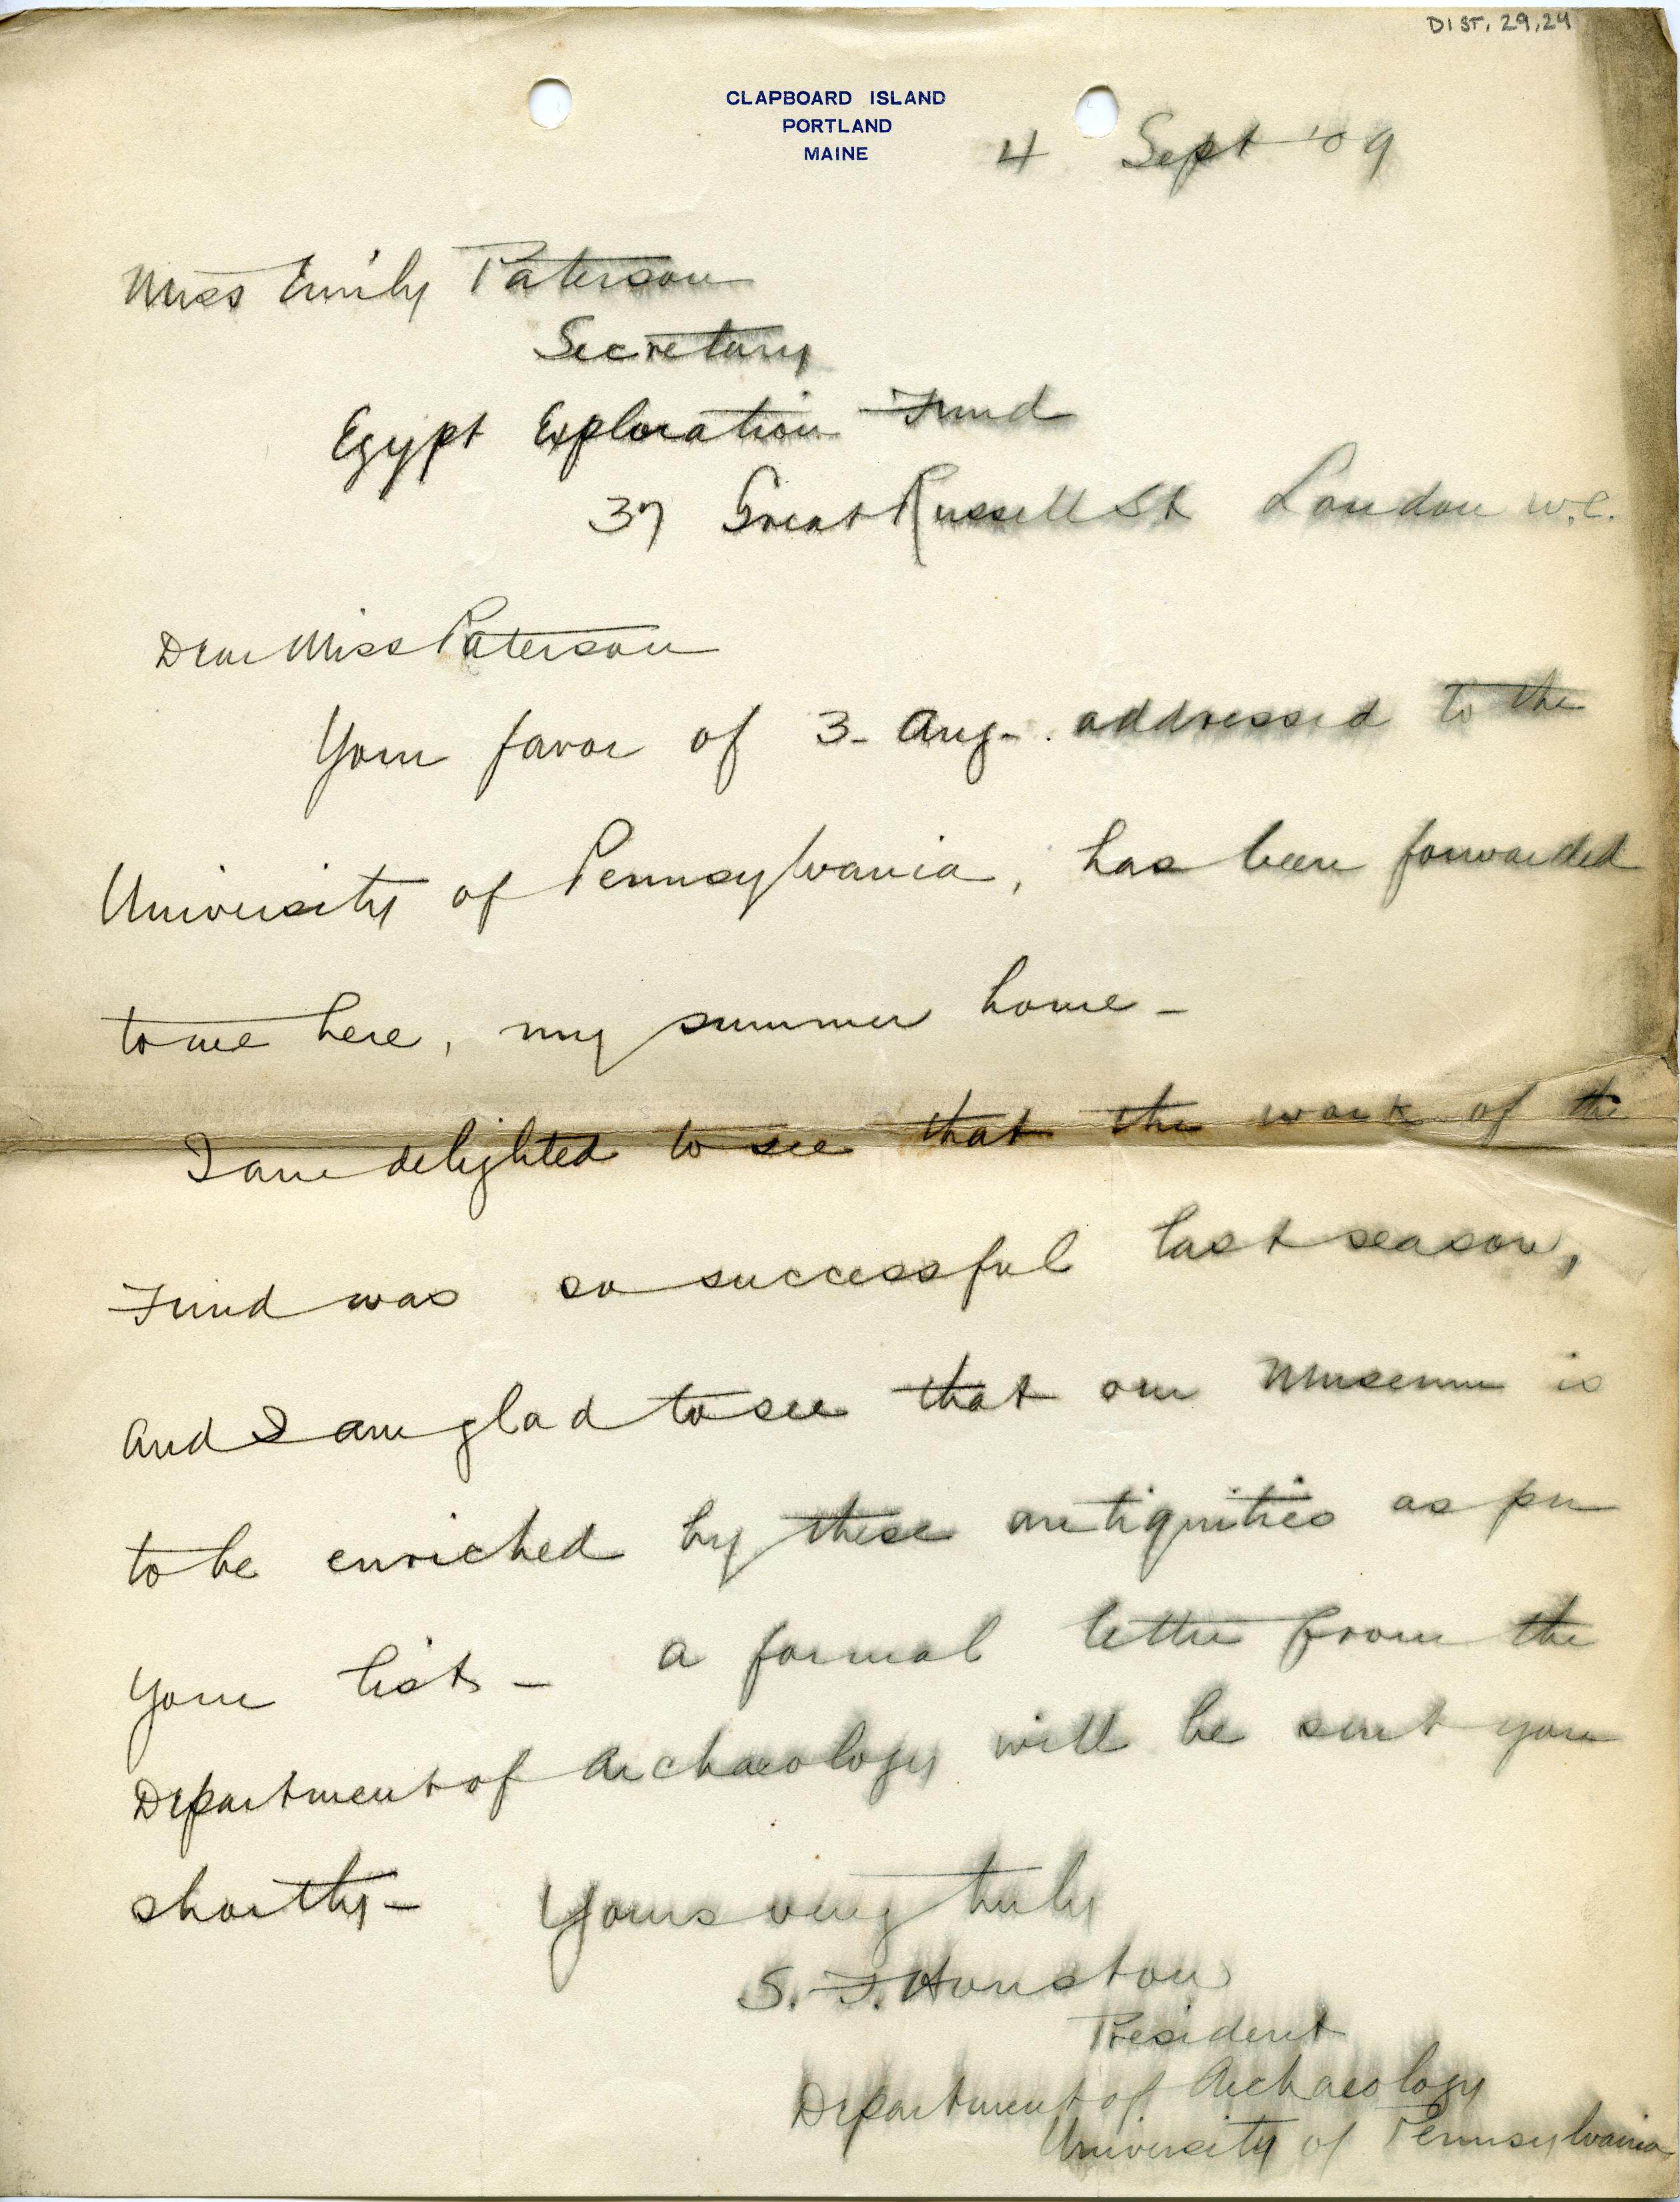 DIST. 29.24
CLAPBOARD ISLAND
PORTLAND
MAINE
4 Sept '09
Miss Emily Paterson
Secretary
Egypt Exploration Fund
37 Great Russell St London W.C.
Dear Miss Paterson
Your favor of 3- Aug-. addressed to the
University of Pennsylvania, has been forwarded
to me here, my summer home -
I am delighted to see that the work of the
Fund was so successful last season,
and I am glad to see that our Museum is
to be enriched by these antiquities as per
your lists - a formal letter from the
Department of Archaeology will be sent you
shortly - Yours very truly
S. F. Houston
President
Department of Archaeology
University of Pennsylvania